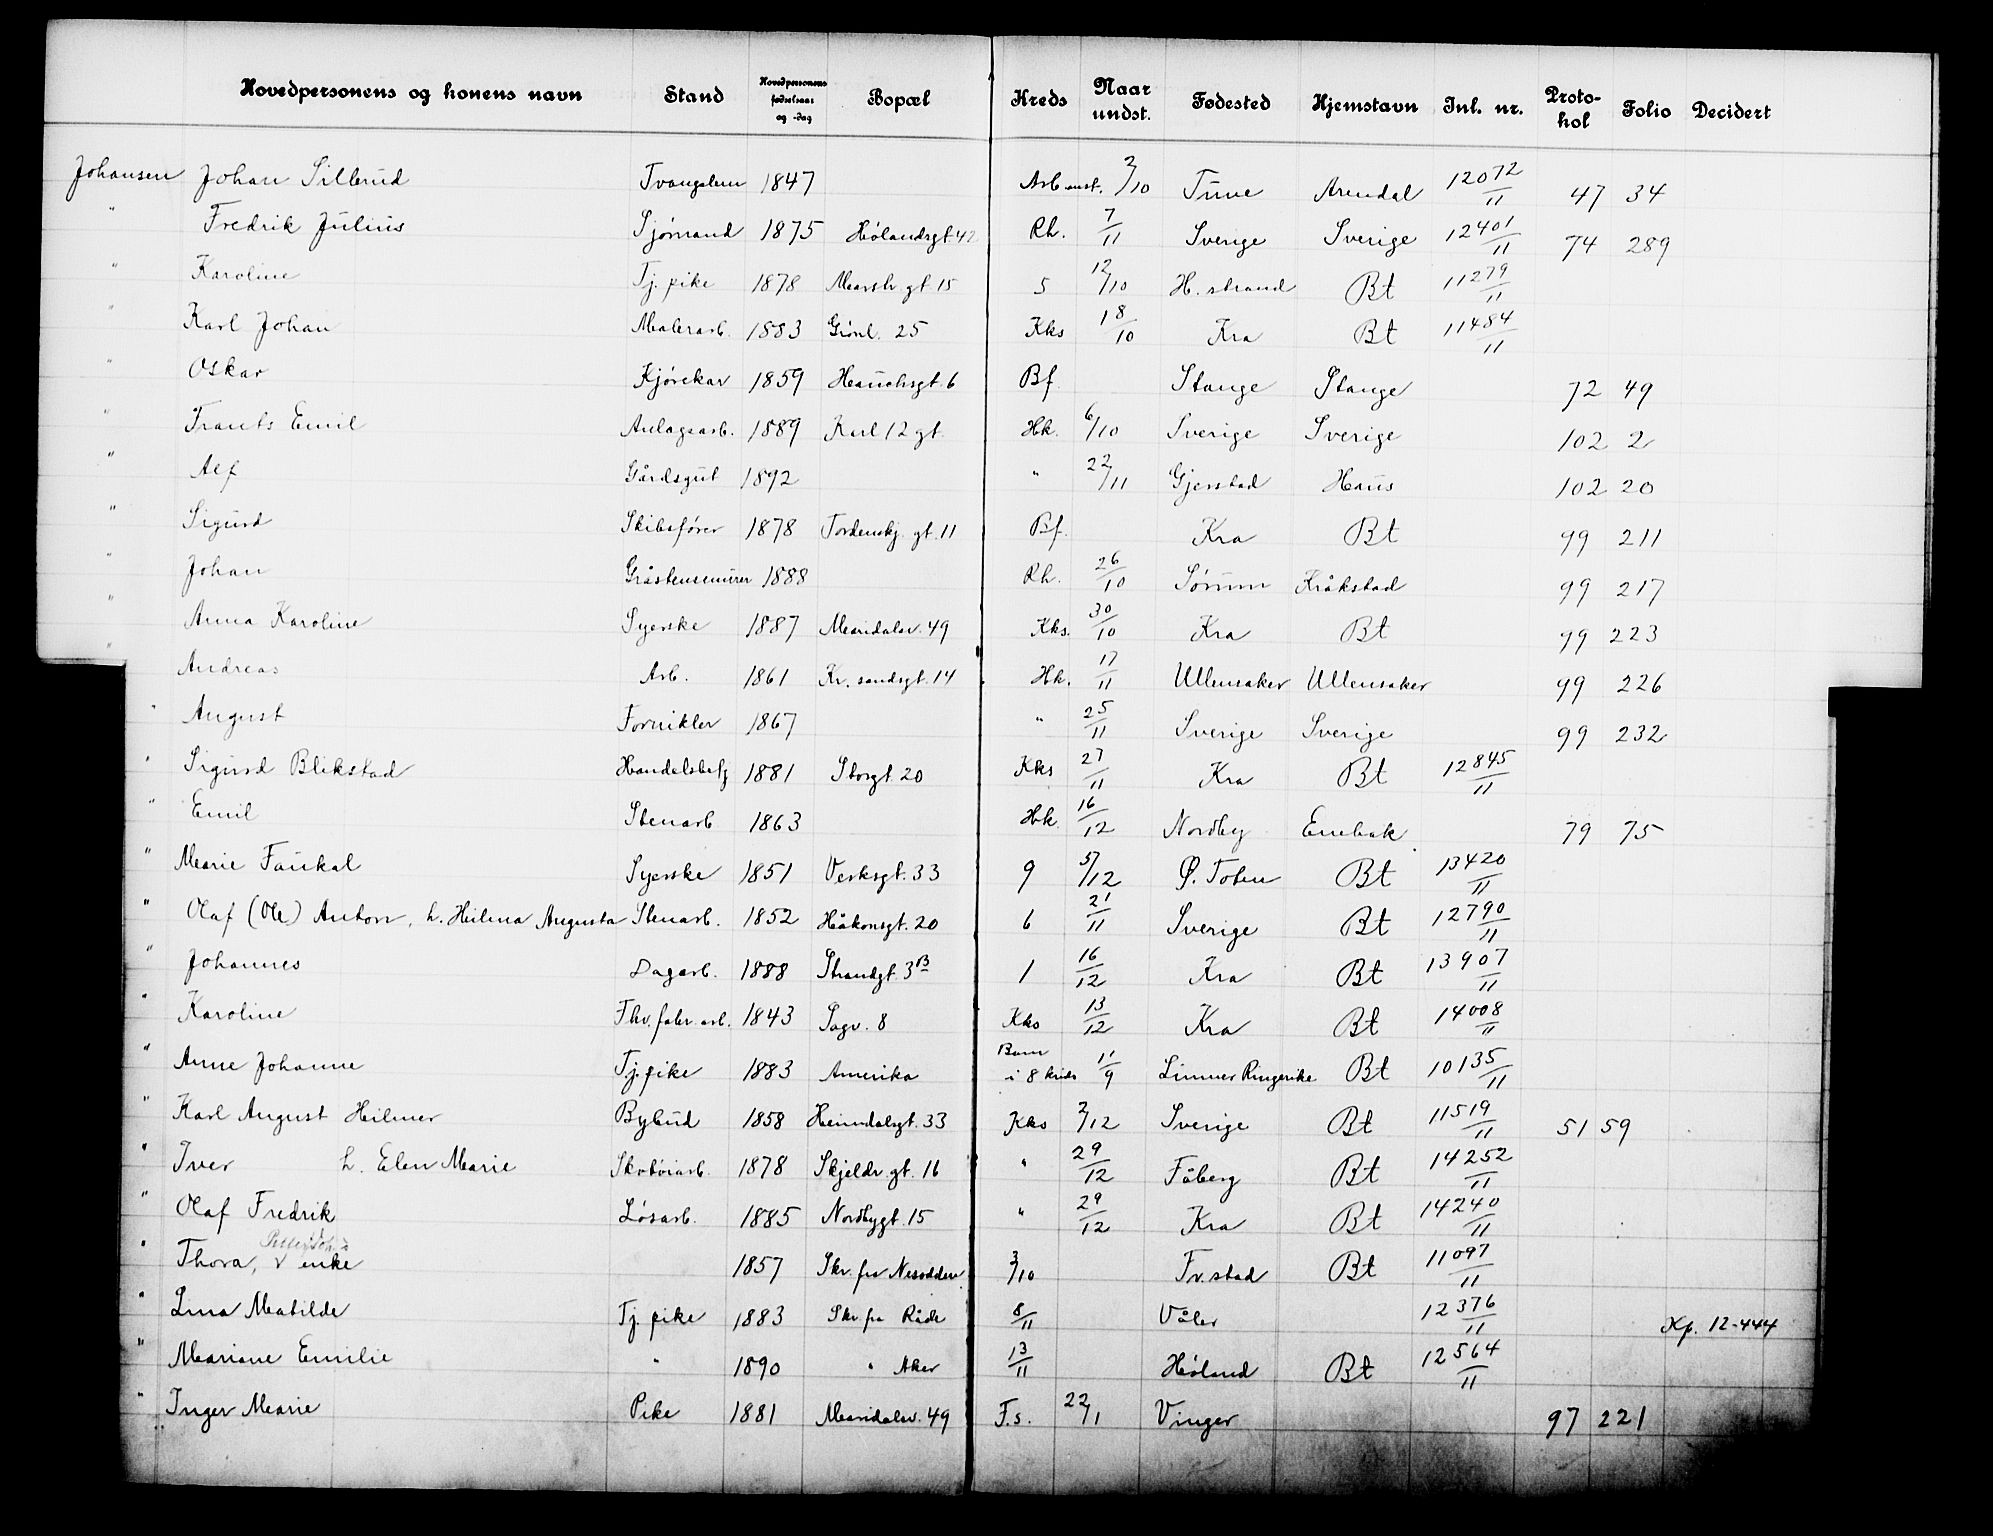 Hovedpersonens og konens navn Stand Hovedpersonens fødselsaar og -dag Bopæl Kreds Naar undst. Fødested Hjemstavn Inl. nr. Protokol Folio Decidert
Johansen Johan Sillerud Tvangslem 1847 Arb.anst. 2/10 Tune Arendal 12072/11 47 34
" Fredrik Julius Sjømand 1875 Hølandsgt 42 Rh. 7/11 Sverige Sverige 12401/11 74 289
" Karoline Tj. pike 1878 Marstr. gt. 15 5 12/10 H. strand Bt 11279/11
" Karl Johan Malerarb. 1883 Grønl. 25 Kks 18/10 Kra Bt 11484/11
" Oskar Kjørekar 1859 Hauchsgt. 6 Bf. Stange Stange 72 49
" Frants Emil Anlagsarb. 1889 Karl 12 gt. Hk. 6/10 Sverige Sverige 102 2
" Alf Gårdsgut 1892 " 22/11 Gjerstad Haus 102 20
" Sigurd Skibsfører 1878 Tordenskj. gt. 11 Bf. Kra Bt 99 211
" Johan Gråstensmurer 1888 Rh. 26/10 Sørum Kråkstad 99 217
" Anna Karoline Syerske 1887 Maridalsv. 49 Kks. 30/10 Kra Bt 99 223
" Andreas Arb. 1861 Kr. sandsgt. 14 Hk. 17/11 Ullensaker Ullensaker 99 226
" August Fornikler 1867 " 25/11 Sverige Sverige 99 232
" Sigurd Blikstad Handelsbetj 1881 Storgt. 20 Kks 27/11 Kra Bt 12845/11
" Emil Stenarb 1863 Hk. 16/12 Nordby Enebak 79 75
" Marie Faukal Syerske 1851 Verksgt. 33 9 5/12 Ø. Toten Bt 13420/11
" Olaf (Ole) Anton, h. Hilma Augusta Stenarb. 1852 Håkonsgt. 20 6 21/11 Sverige Bt 12790/11
" Johannes Dagarb. 1888 Strandgt. 3B 1 16/12 Kra Bt 13907/11
" Karoline Fhv. fabr. arb. 1843 Sagv. 8 Kks 13/12 Kra Bt 14008/11
" Anne Johanne Tj. pike 1883 Amerika Barn i 8 kreds 11/9 Limner Ringerike Bt 10135/11
" Karl August Hilmer Bybud 1858 Heimdalsgt. 33 Kks 2/12 Sverige Bt 11519/11 51 59
" Iver h. Elen Marie Skotøiarb. 1878 Skjeldr. gt. 16 " 29/12 Fåberg Bt 14252/11
" Olaf Fredrik Løsarb. 1885 Nordbygt. 15 " 29/12 Kra Bt 14240/11
" Thora, enke 1857 Skr. fra Nesodden 3/10 Fr. stad Bt 11097/11
" Lina Matilde Tj. pike 1883 Skr. fra Råde 8/11 Våler 12376/11 Kp. 12-444
" Mariane Emilie " 1890 " Aker 13/11 Høland Bt 12564/11
" Inger Marie Pike 1881 Maridalsv. 49 F.s. 22/1 Vinger 97 221